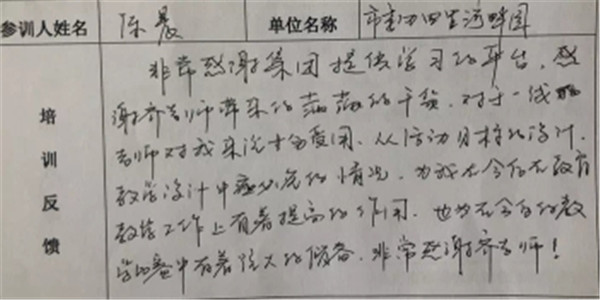 参训人姓名 陈晨 单位名称 市直幼四星河畔园
培训反馈
非常感谢集团提供学习的平台，感
谢齐老师带来的满满的干货，对于一线
老师对我来说十分受用、从活动目标的设计、
教学设计中 的情况，为我在今后在教育
教学工作上有着提高的作用，也为在今后的教
学 中有着 大的 备，非常感谢齐老师！